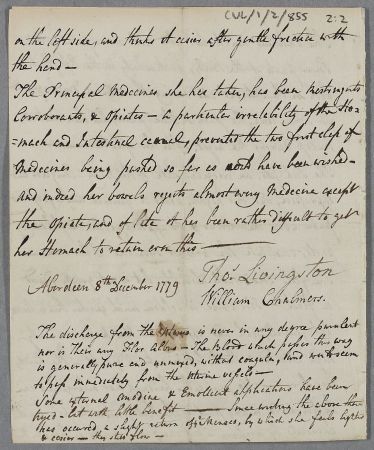 CUL/1/2/855 2:2
on the left side, and thinks it easier after gentle friction with
the hand —
The Principal Medicines she has taken, has been Astringents
Corroborants, & Opiates — a particular irretability of the Sto=
=mach and Intestinal cannal, prevented the two first class of
Medicines being pushed so far as could have been wished —
and indeed her bowels rejects almost every Medicine except
the Opiate, and of late it has been rather difficult to get
her Stomach to retain even this —
Aberdeen 8th December 1779
Thos Livingston
William Chalmers.
The discharge from the Uterus is never in any degree purulent
nor is their any Flor Albus — The Blood which passes this way
is generally pure and unmixed, without coagula, and would seem
to pass immediately from the uterine vessels —
Some external anodine & Emollient applications have been
tryed — but with little benefit — Since writing the above there
has occured, a slight return of ye Menses, by which she feels lighter
& easier — they still flow —